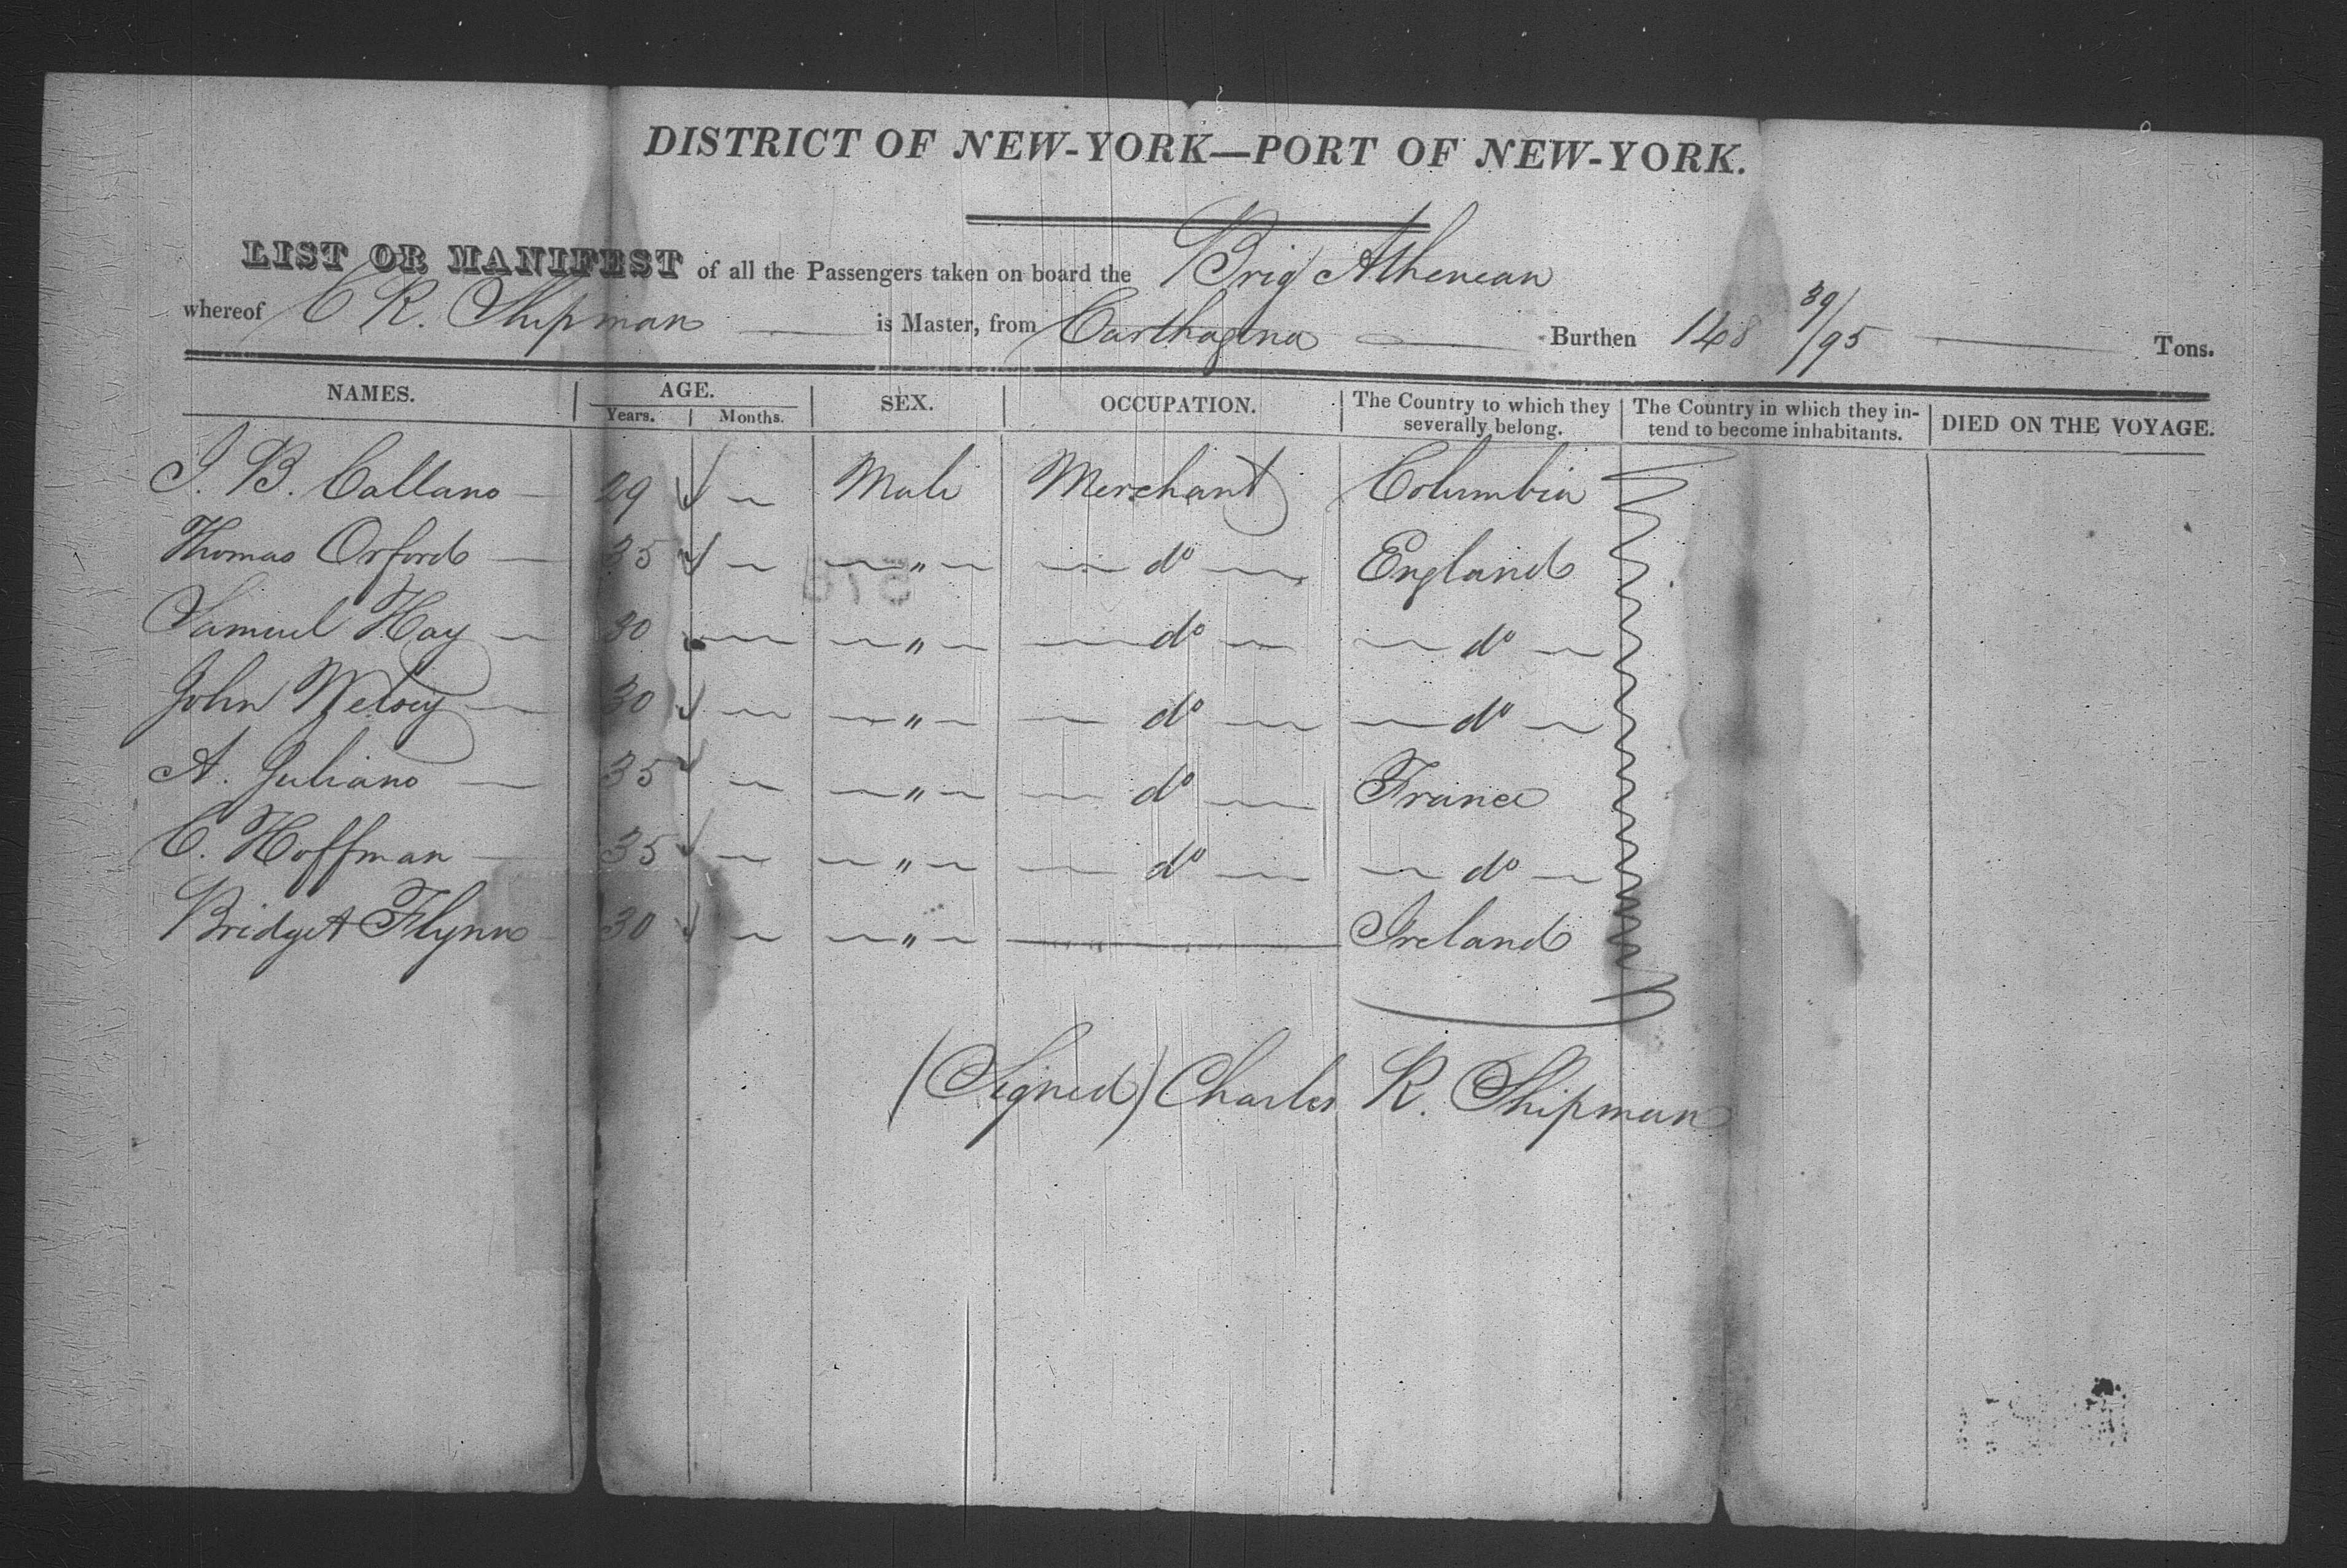 DISTRICT OF NEW-YORK—PORT OF NEW-YORK.
LIST OR MANIFEST of all the Passengers taken on board the Brig Athenean
whereof C R. Shipman is Master, from Carthagena Burthen 148 39/95 Tons.
NAMES. AGE. SEX. OCCUPATION. The Country to which they severally belong. The Country in which they intend to become inhabitants. DIED ON THE VOYAGE.
Years. Months.
J. B. Callano 29 — Male Merchant Columbia
Thomas Orford 35 — " do England
Samuel Hay 30 — " do do
John 30 — " do do
A. Juliano 35 — " do France
C. Hoffman 35 — " do do
Bridget Flynn 30 — " — Ireland
(Signed) Charles R. Shipman